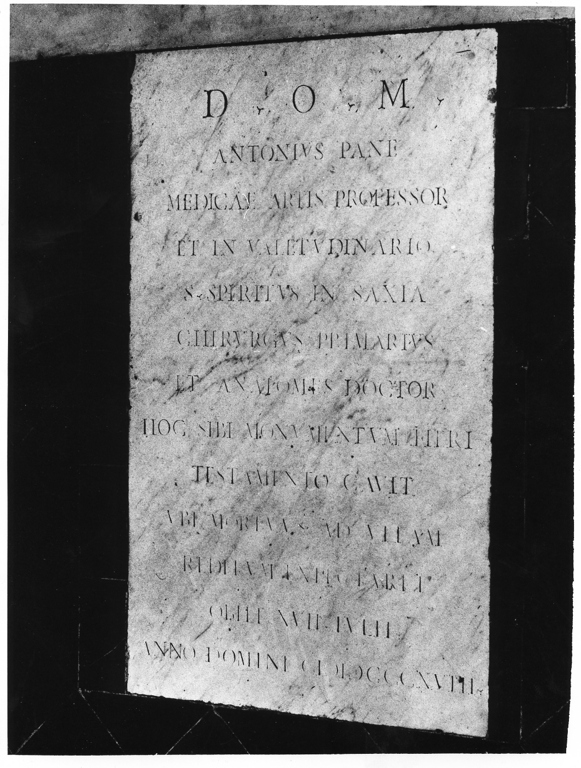 D. O. M.
ANTONIVS PANE
MEDICAE ARTIS PROFESSOR
ET IN VALETVDINARIO
S. SPIRITVS IN SAXIA
CHIRVRGVS PRIMARIVS
ET ANATOMES DOCTOR
HOC SIBI MONVMENTVM FIERI
TESTAMENTO CAVIT
VBI MORTVVS AD VITAM
REDITVM EXPECTARET
OBIIT XVII IVLII
ANNO DOMINI CIƆIƆCCCXVIII